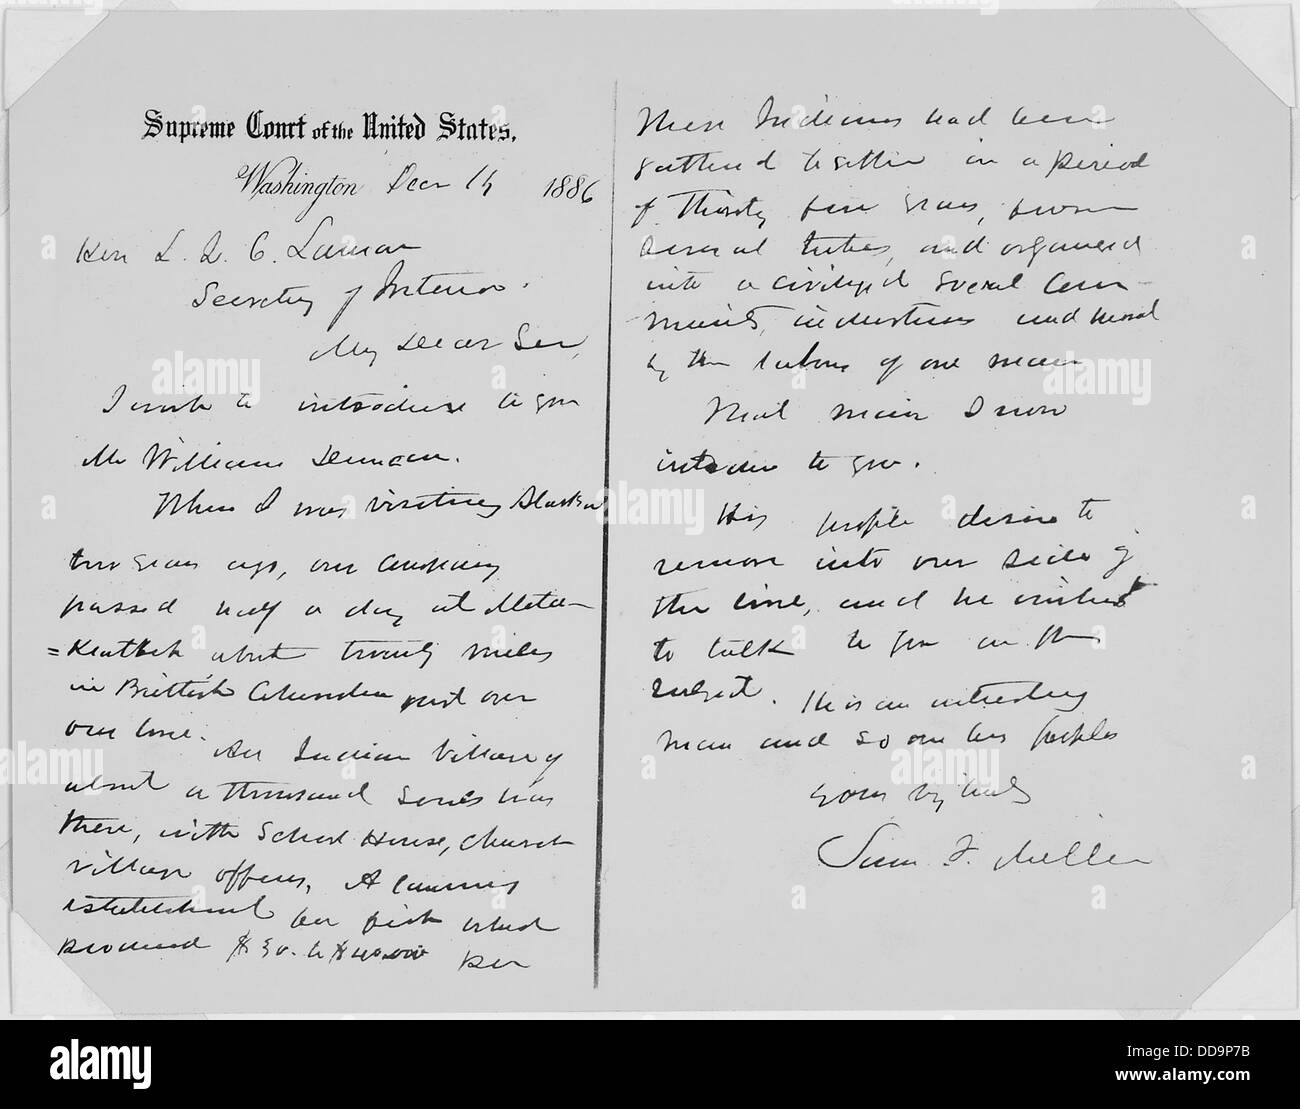 Supreme Court of the United States.
Washington Decr 14 1886
Hon L. Q. C. Lamar
Secretary of Interior.
My Dear Sir,
I wish to introduce to you
Mr William Duncan.
When I was visiting Alaska
two years ago, our company
passed half a day at Metla-
=Kathla about twenty miles
in British Columbia just over
our line. An Indian Village of
about a thousand souls was
there, with School House, Church
village offices, A canning
establishment for fish which
produced $30. to $40.000 per
These Indians had been
gathered together in a period
of thirty five years, from
several tribes, and organized
into a civilized Social Com-
munity, industrious and moral
by the labors of one man
That man I now
introduce to you.
His people desire to
remove into our side of
the line, and he wishes
to talk to you on this
subject. He is an interesting
man and so are his people
Yours very truly
Sam. F. Miller
alamy
alamy
Image ID: DD9P7B
www.alamy.com